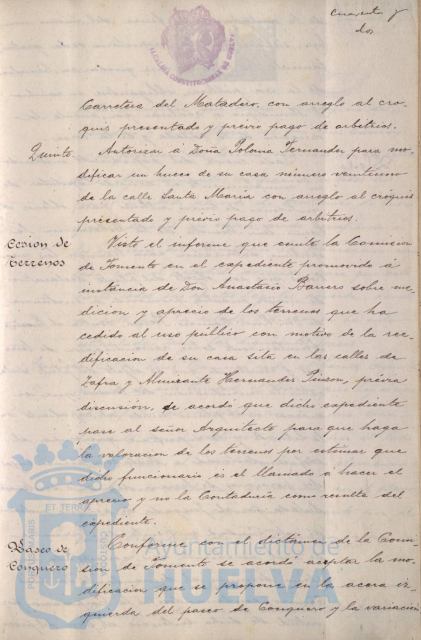 cuarenta y
dos
ALCALDIA CONSTITUCIONAL DE HUELVA
Carretera del Matadero, con arreglo al cro-
quis presentado y previo pago de arbitrios.
Quinto. Autorizar á Doña Paloma Fernandez para mo-
dificar un hueco de su casa número veintiuno
de la calle Santa María con arreglo al cróquis
presentado y previo pago de arbitrios.
Cesion de
terrenos
Visto el informe que emite la Comision
de Fomento en el expediente promovido á
instancia de Don Anastasio Barrero sobre me-
dicion y aprecio de los terrenos que ha
cedido al uso público con motivo de la ree-
dificacion de su casa sita en las calles de
Zafra y Almirante Hernandez Pinzon, prévia
discusión, se acordó que dicho expediente
pase al señor Arquitecto para que haga
la valoracion de los terrenos por estimar que
dicho funcionario es el llamado á hacer el
aprecio y no la Contaduría como resulta del
expediente.
Paseo de
Conquero
Conforme con el dictámen de la Comi-
sion de Fomento se acordó aceptar la mo-
dificacion que se propone en la acera iz-
quierda del paseo de Conquero y la variación
PORTUS MARIS
ET TERRÆ
CUSTODIA
Ayuntamiento de
HUELVA